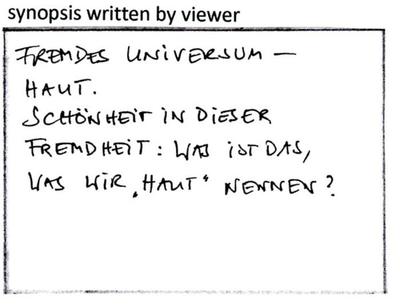 synopsis written by viewer
FREMDES UNIVERSUM —
HAUT.
SCHÖNHEIT IN DIESER
FREMDHEIT: WAS IST DAS,
WAS WIR „HAUT“ NENNEN?